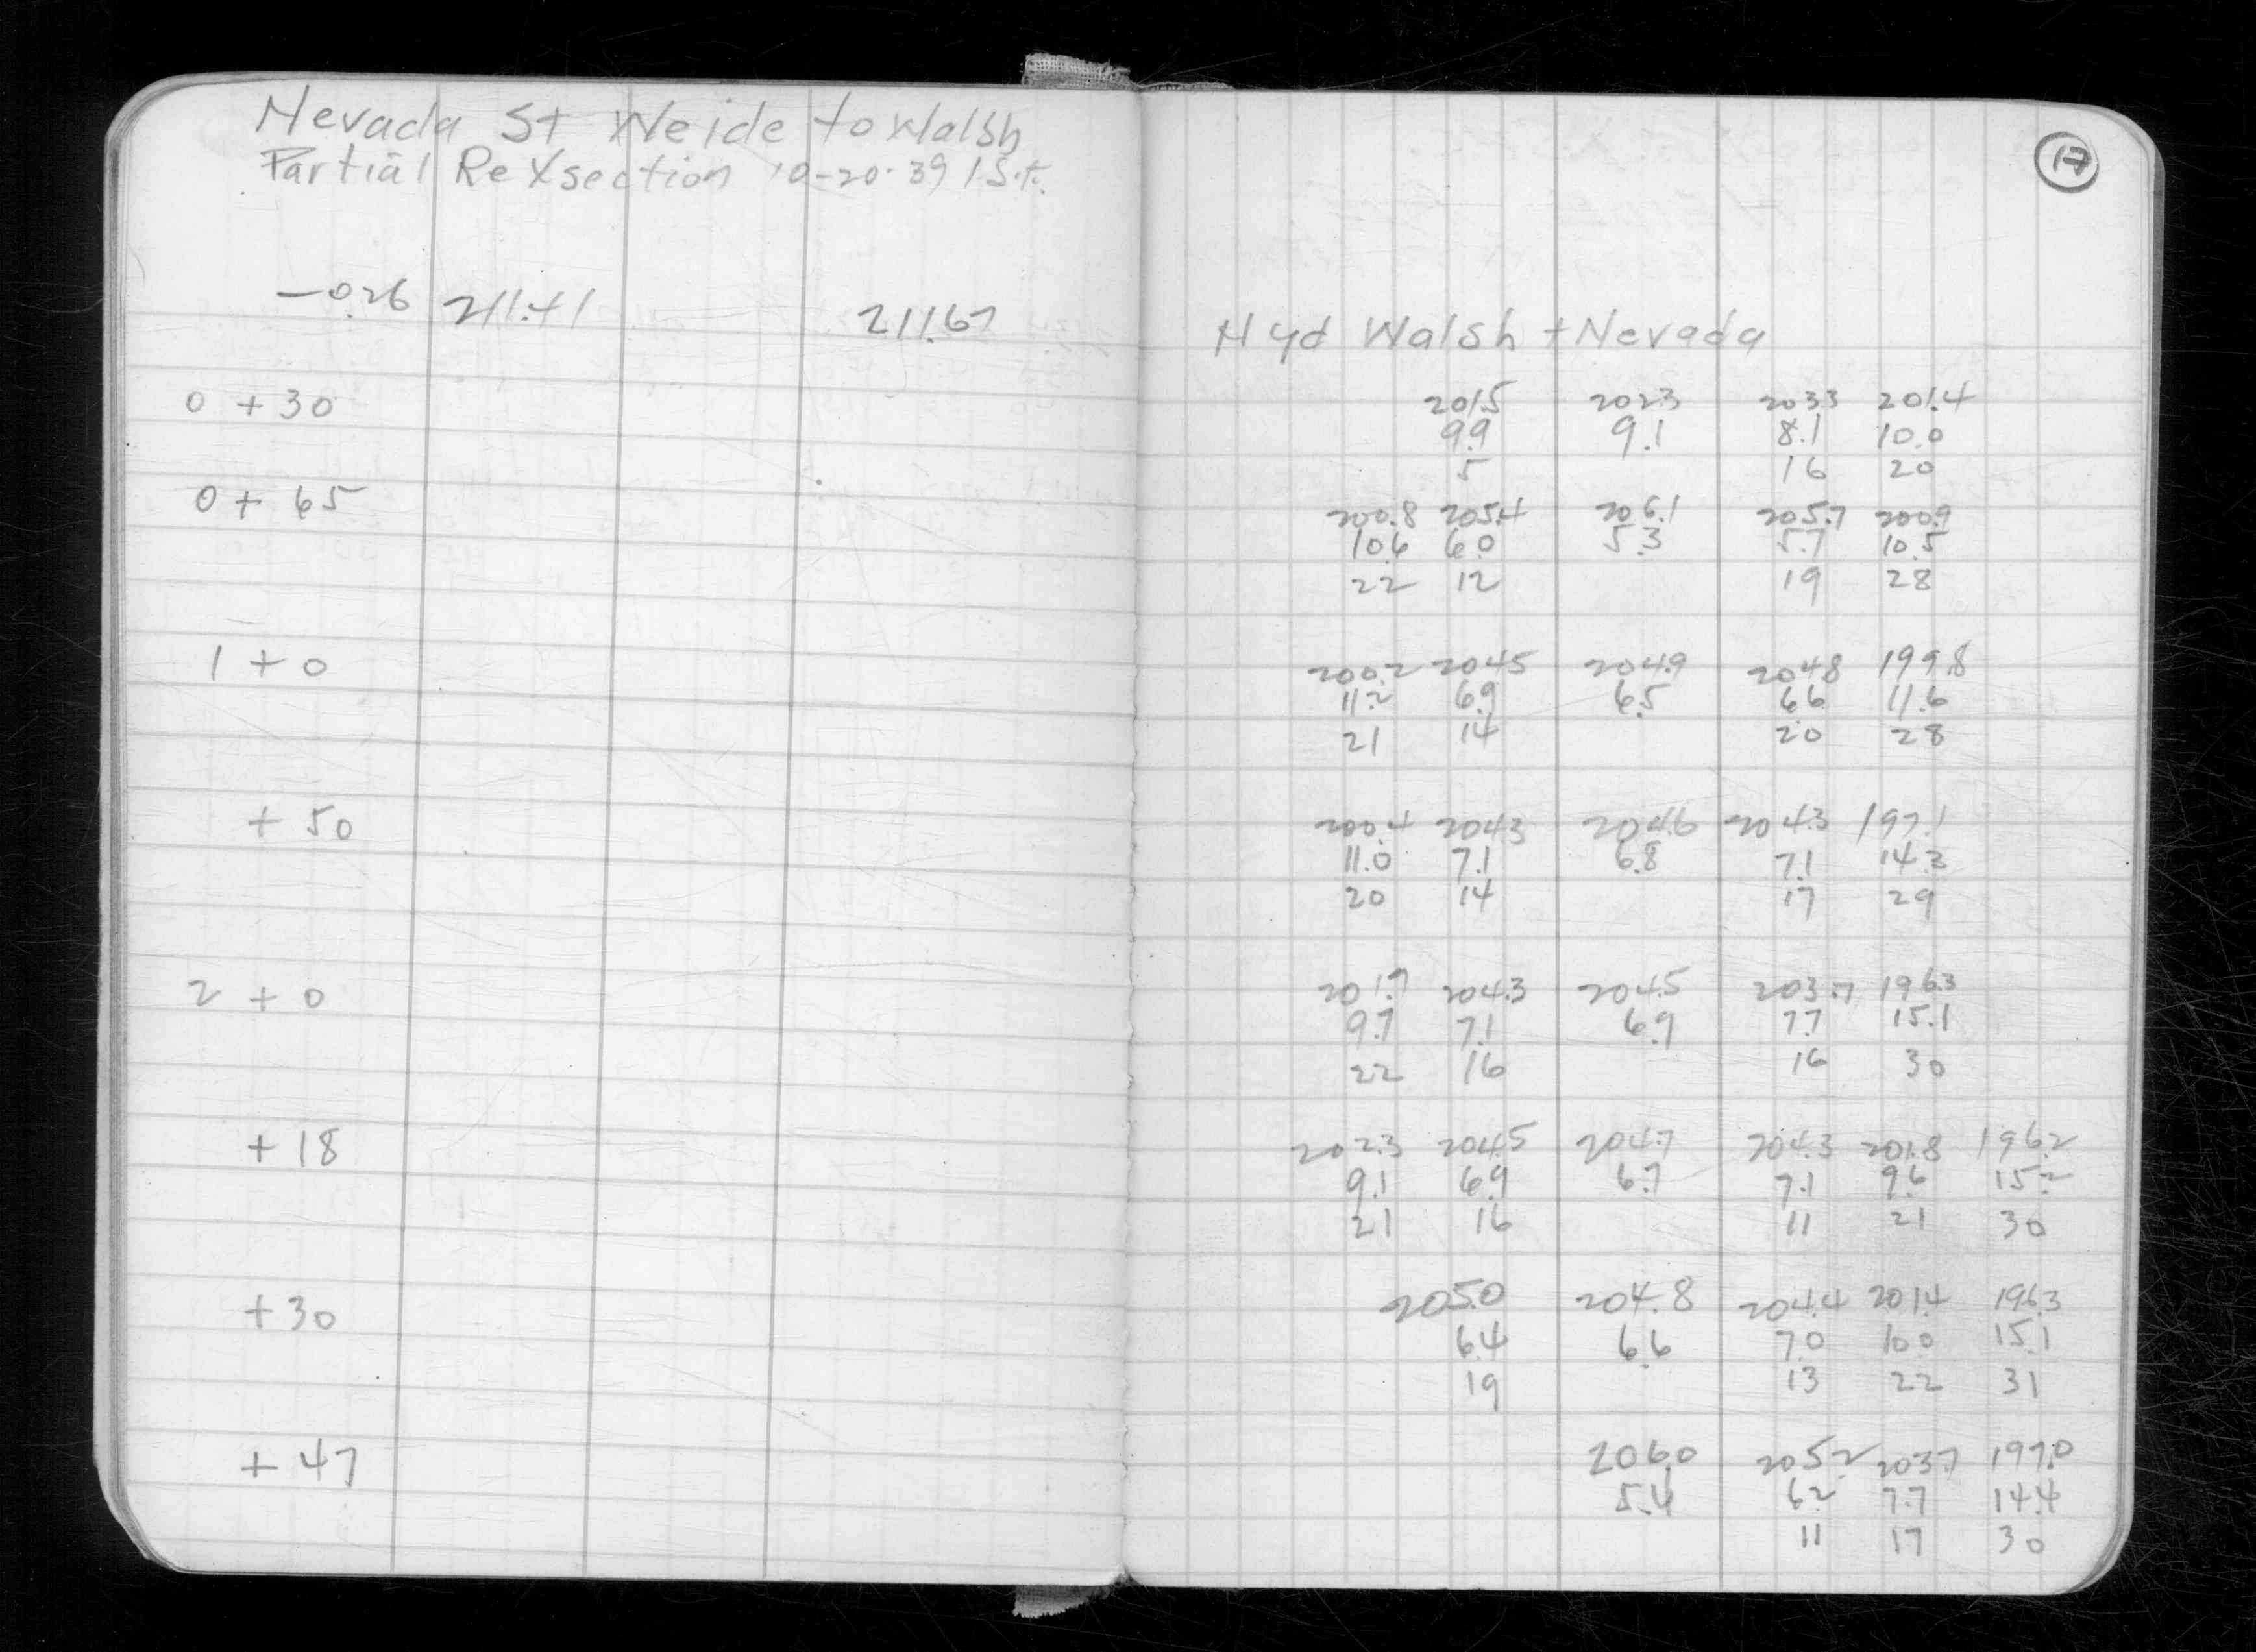 Nevada St Weide to Walsh
Partial Re Xsection 10-20-39
-0.26 211.41 211.67
17
Hyd Walsh + Nevada
0 + 30 201.5 202.3 203.3 201.4
9.9 9.1 8.1 10.0
5 16 20
0 + 65 200.8 205.4 206.1 205.7 200.9
10.6 6.0 5.3 5.7 10.5
22 12 19 28
1 + 0 200.2 204.5 204.9 204.8 199.8
11.2 6.9 6.5 6.6 11.6
21 14 20 28
+ 50 200.4 204.3 204.6 204.3 197.1
11.0 7.1 6.8 7.1 14.3
20 14 17 29
2 + 0 201.7 204.3 204.5 203.7 196.3
9.7 7.1 6.9 7.7 15.1
22 16 16 30
+ 18 202.3 204.5 204.7 204.3 201.8 196.2
9.1 6.9 6.7 7.1 9.6 15.2
21 16 11 21 30
+30 205.0 204.8 204.4 201.4 196.3
6.4 6.6 7.0 10.0 15.1
19 13 22 31
+ 47 206.0 205.2 203.7 197.0
5.4 6.2 7.7 14.4
11 17 30